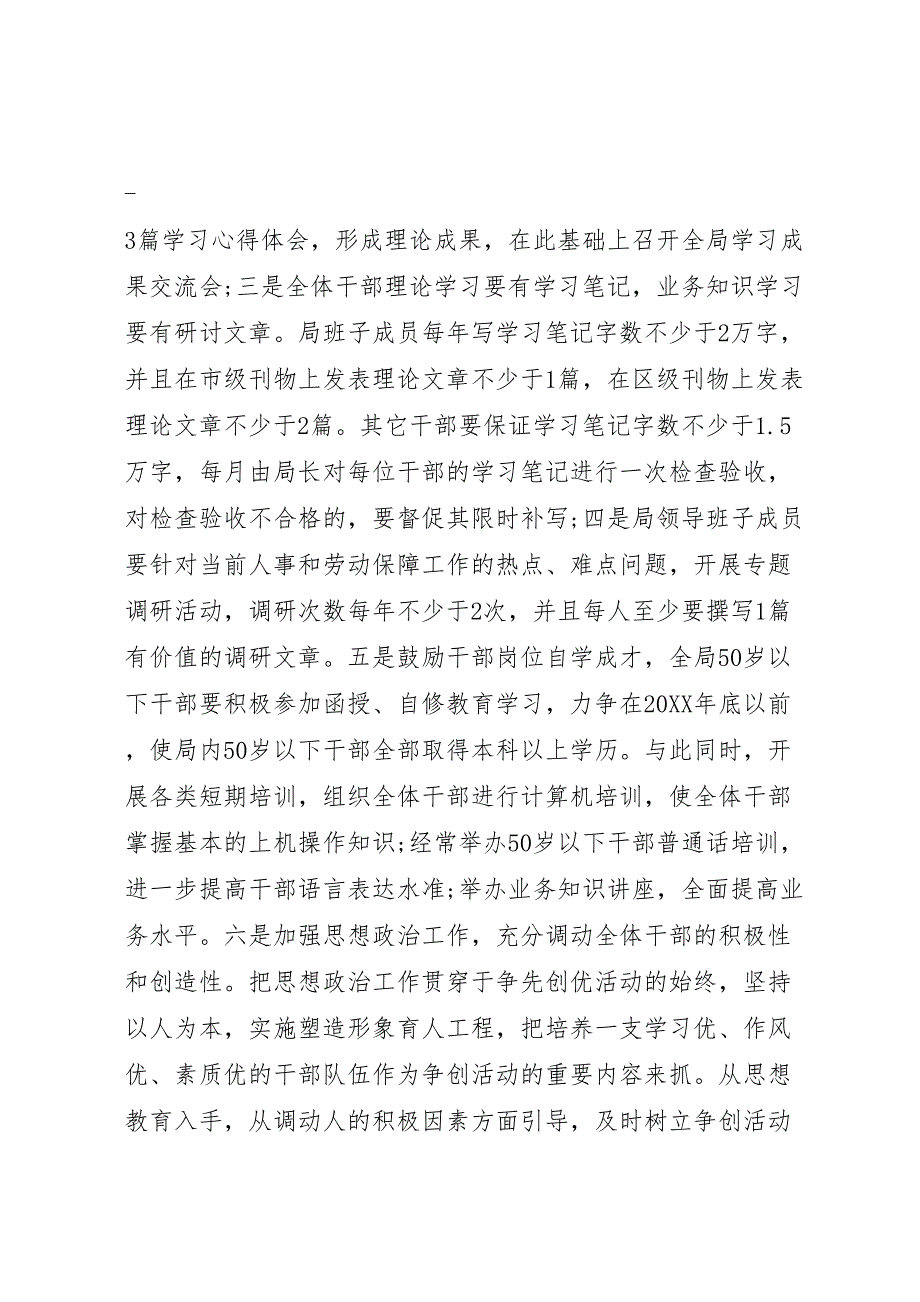 –
3篇学习心得体会，形成理论成果，在此基础上召开全局学习成
果交流会;三是全体干部理论学习要有学习笔记，业务知识学习
要有研讨文章。局班子成员每年写学习笔记字数不少于2万字，
并且在市级刊物上发表理论文章不少于1篇，在区级刊物上发表
理论文章不少于2篇。其它干部要保证学习笔记字数不少于1.5
万字，每月由局长对每位干部的学习笔记进行一次检查验收，
对检查验收不合格的，要督促其限时补写;四是局领导班子成员
要针对当前人事和劳动保障工作的热点、难点问题，开展专题
调研活动，调研次数每年不少于2次，并且每人至少要撰写1篇
有价值的调研文章。五是鼓励干部岗位自学成才，全局50岁以
下干部要积极参加函授、自修教育学习，力争在20XX年底以前
，使局内50岁以下干部全部取得本科以上学历。与此同时，开
展各类短期培训，组织全体干部进行计算机培训，使全体干部
掌握基本的上机操作知识;经常举办50岁以下干部普通话培训，
进一步提高干部语言表达水准;举办业务知识讲座，全面提高业
务水平。六是加强思想政治工作，充分调动全体干部的积极性
和创造性。把思想政治工作贯穿于争先创优活动的始终，坚持
以人为本，实施塑造形象育人工程，把培养一支学习优、作风
优、素质优的干部队伍作为争创活动的重要内容来抓。从思想
教育入手，从调动人的积极因素方面引导，及时树立争创活动